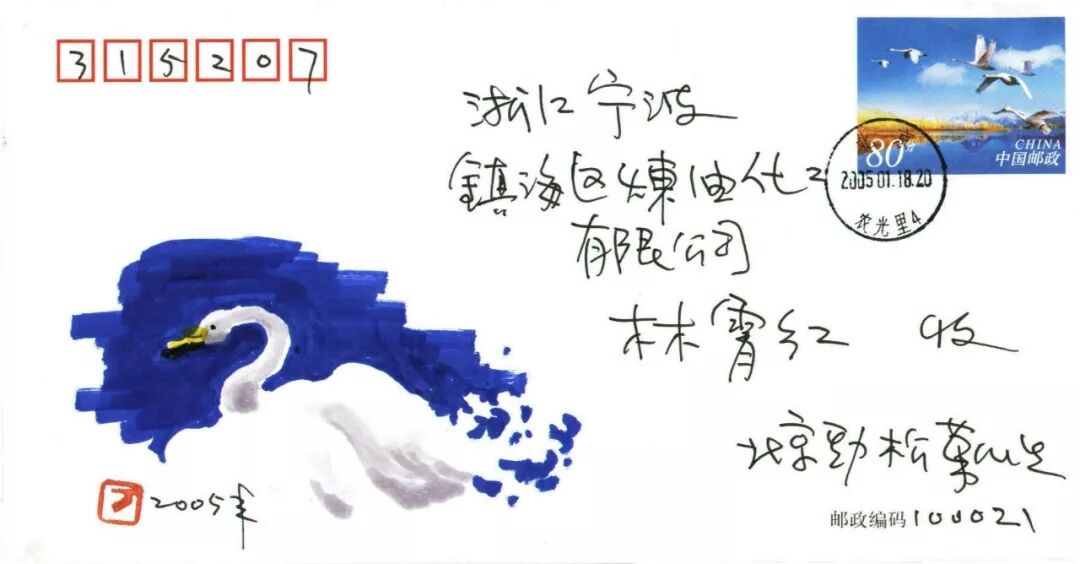 315207
浙江宁波
鎮海区煉油化工
有限公司
林霄红 收
北京劲松
邮政编码100021
2005年
80分
CHINA
中国邮政
2005.01.18.20
光里4